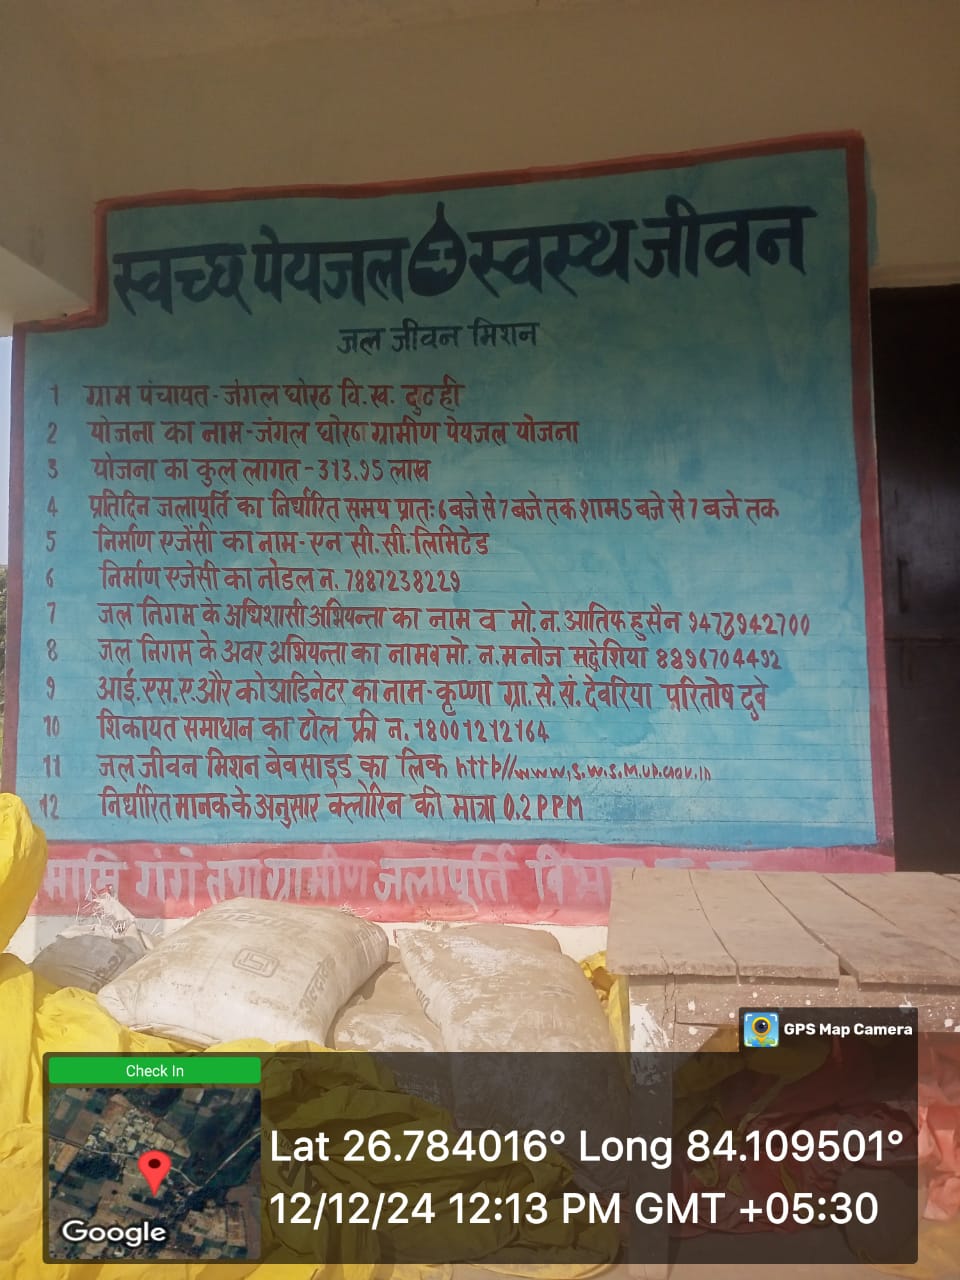 स्वच्छ पेयजल स्वस्थ जीवन
जल जीवन मिशन
1 ग्राम पंचायत - जंगल घोरठ वि.ख. दुदही
2 योजना का नाम - जंगल घोरठ ग्रामीण पेयजल योजना
3 योजना का कुल लागत - 313.95 लाख
4 प्रतिदिन जलापूर्ति का निर्धारित समय प्रातः 6 बजे से 7 बजे तक शाम 5 बजे से 7 बजे तक
5 निर्माण एजेंसी का नाम - एन सी. सी. लिमिटेड
6 निर्माण एजेंसी का नोडल न. 7887238229
7 जल निगम के अधिशासी अभियन्ता का नाम व मो. न. आतिफ हुसैन 9473942700
8 जल निगम के अवर अभियन्ता का नाम व मो. न. मनोज मद्देशिया 8896704492
9 आई. एस. ए. और कोआडिनेटर का नाम - कृष्णा ग्रा. से. सं. देवरिया परितोष दुबे
10 शिकायत समाधान का टोल फ्री न. 18001212164
11 जल जीवन मिशन बेवसाइड का लिक http//www.s.w.s.m.up.gov.in
12 निर्धारित मानक के अनुसार क्लोरिन की मात्रा 0.2 PPM
मामि गंगे तथा ग्रामीण जलापूर्ति
GPS Map Camera
Check In
Google
Lat 26.784016° Long 84.109501°
12/12/24 12:13 PM GMT +05:30